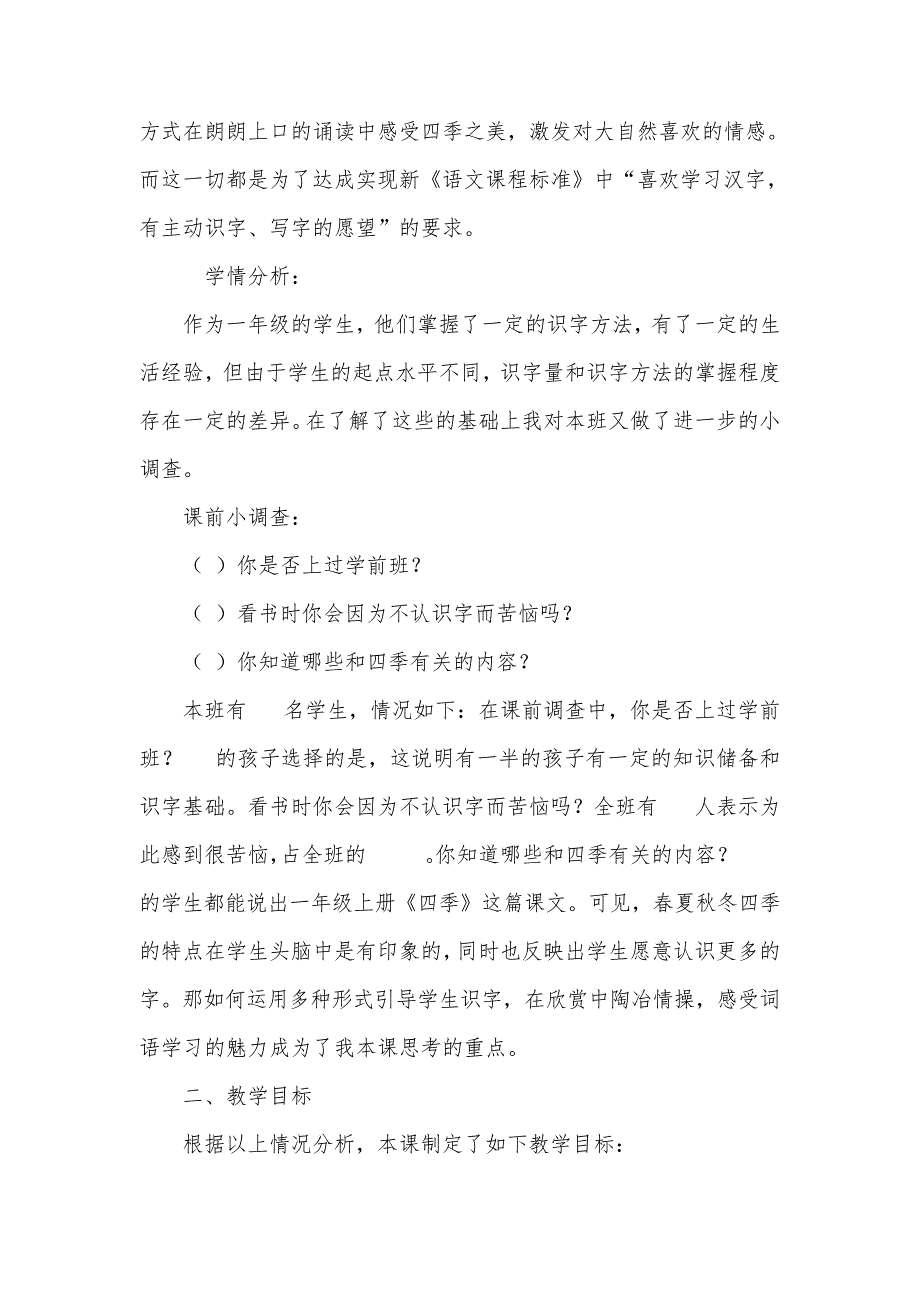 方式在朗朗上口的诵读中感受四季之美，激发对大自然喜欢的情感。
而这一切都是为了达成实现新《语文课程标准》中“喜欢学习汉字，
有主动识字、写字的愿望”的要求。
学情分析：
作为一年级的学生，他们掌握了一定的识字方法，有了一定的生
活经验，但由于学生的起点水平不同，识字量和识字方法的掌握程度
存在一定的差异。在了解了这些的基础上我对本班又做了进一步的小
调查。
课前小调查：
（ ）你是否上过学前班？
（ ）看书时你会因为不认识字而苦恼吗？
（ ）你知道哪些和四季有关的内容？
本班有  名学生，情况如下：在课前调查中，你是否上过学前
班？  的孩子选择的是，这说明有一半的孩子有一定的知识储备和
识字基础。看书时你会因为不认识字而苦恼吗？全班有  人表示为
此感到很苦恼，占全班的   。你知道哪些和四季有关的内容？
的学生都能说出一年级上册《四季》这篇课文。可见，春夏秋冬四季
的特点在学生头脑中是有印象的，同时也反映出学生愿意认识更多的
字。那如何运用多种形式引导学生识字，在欣赏中陶冶情操，感受词
语学习的魅力成为了我本课思考的重点。
二、教学目标
根据以上情况分析，本课制定了如下教学目标：